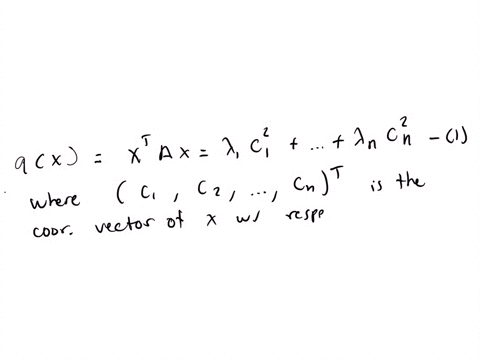 q(x) = x^T A x = λ₁ c₁² + ... + λₙ cₙ² - (1)
where (c₁, c₂, ..., cₙ)^T is the
coor. vector of x w/ respe